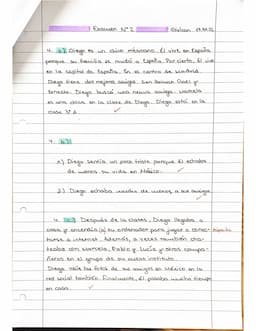 Examen N°2
4. a) Diego es un chico mexicano. Él vive en España
porque su familia se mudó a España. Por cierto, él vive
en la capital de España. En el centro de Madrid.
Diego tiene dos mejores amigos. Son Daniel y
Ernesto. Diego buscó una nueva amiga. Marcela
es una chica en la clase de Diego. Diego está en la
clase
4. b)
1) Diego sentía un poco triste porque él echaba
de menos su vida en México.
2) Diego echaba mucho de menos a sus amigos.
4. c) Después de la clases, Diego llegaba a
casa y encendía (a) su ordenador para jugar o conec-
tarse a internet. Además, a veces también cha-
teaba con Marcela, Pablo y Lucía y otros compa-
ñeros en el grupo de su nuevo instituto.
Diego veía las fotos de sus amigos en México en la
red social también. Finalmente, él pasaba mucho tiempo
en casa.